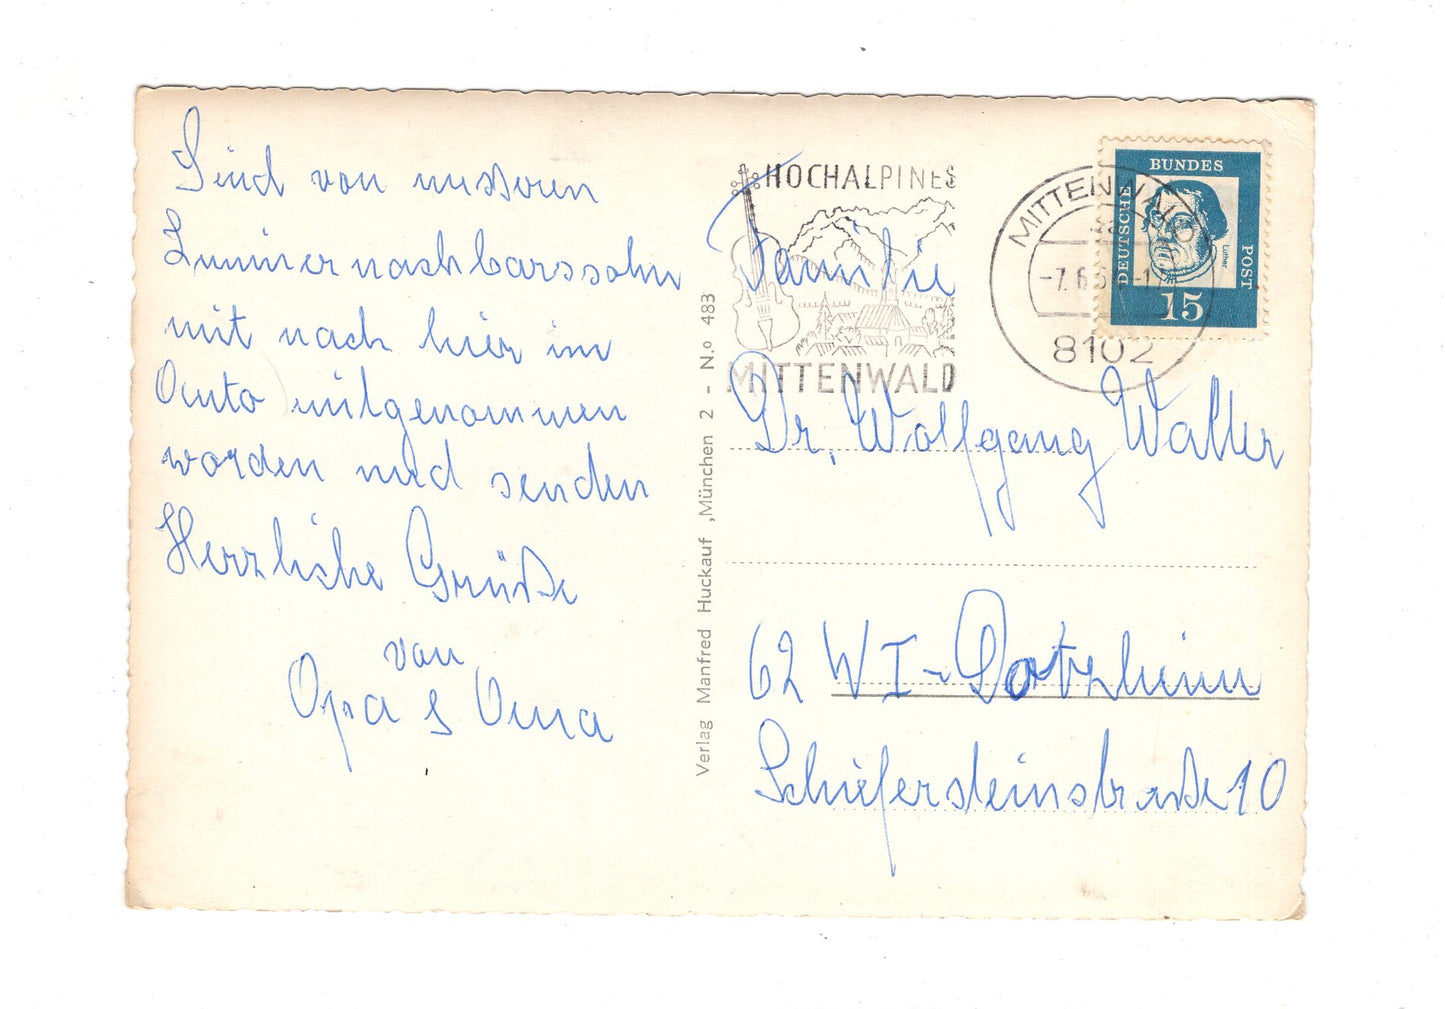 Sind von unseren
Zimmernachbarssohn
mit nach hier im
Auto mitgenommen
worden und senden
Herzliche Grüße
von
Opa & Oma
Verlag Manfred Huckauf ,München 2 - N.o 483
HOCHALPINES
MITTENWALD
MITTENWALD
-7.6.6
8102
DEUTSCHE
BUNDES
POST
Luther
15
Familie
Dr. Wolfgang Walter
62 WI-Dotzheim
Schiefersteinstraße 10